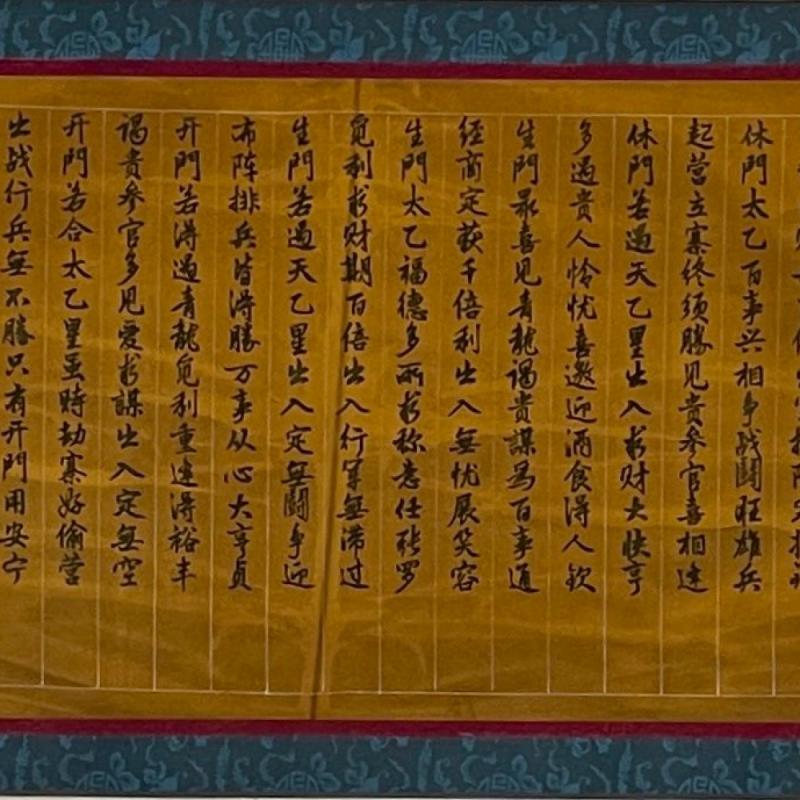 休門太乙百事兴相争战鬪旺雄兵
起营立寨终须勝见贵参官喜相逢
休門若遇天乙星出入求财大快亨
多遇贵人怜忧喜邀迎酒食得人钦
生門最喜见青龍谒贵謀為百事通
经商定获千倍利出入無忧展笑容
生門太乙福德多所求称意任张罗
觅利求财期百倍出入行军無滞过
生門若遇天乙星出入定無鬪争迎
布阵排兵皆得勝万事从心大亨贞
开門若得遇青龍觅利重逢得裕丰
谒贵参官多见爱求謀出入定無空
开門若合太乙星虽时劫寨好偷营
出战行兵無不勝只有开門用安宁